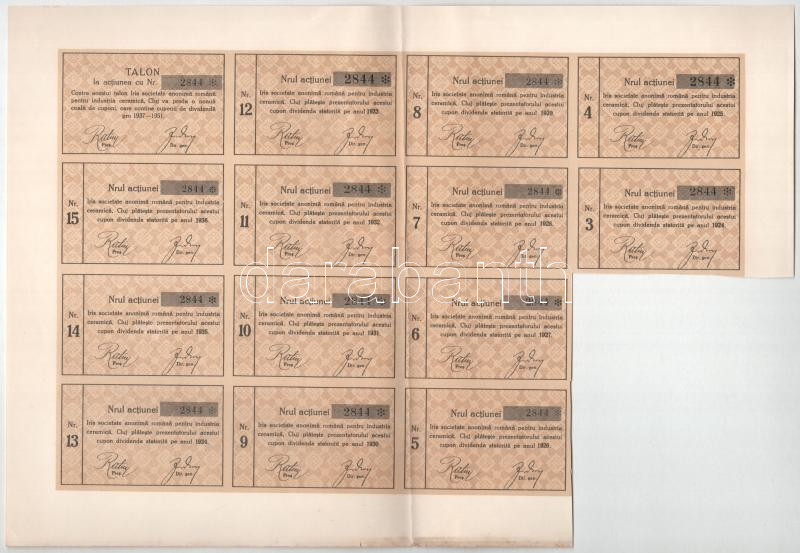 TALON
la acțiunea cu Nr. 2844 ✻
Contra acestui talon Iris societate anonimă română
pentru industria ceramică, Cluj va preda o nouă
coală de cuponi, care conține cuponii de dividendă
pro 1937—1951.
Preș. Dir. gen.
Nr. 12
Nrul acțiunei 2844 ✻
Iris societate anonimă română pentru industria
ceramică, Cluj plătește prezentatorului acestui
cupon dividenda statorită pe anul 1933.
Preș. Dir. gen.
Nr. 8
Nrul acțiunei 2844 ✻
Iris societate anonimă română pentru industria
ceramică, Cluj plătește prezentatorului acestui
cupon dividenda statorită pe anul 1929.
Preș. Dir. gen.
Nr. 4
Nrul acțiunei 2844 ✻
Iris societate anonimă română pentru industria
ceramică, Cluj plătește prezentatorului acestui
cupon dividenda statorită pe anul 1925.
Preș. Dir. gen.
Nr. 15
Nrul acțiunei 2844 ✻
Iris societate anonimă română pentru industria
ceramică, Cluj plătește prezentatorului acestui
cupon dividenda statorită pe anul 1936.
Preș. Dir. gen.
Nr. 11
Nrul acțiunei 2844 ✻
Iris societate anonimă română pentru industria
ceramică, Cluj plătește prezentatorului acestui
cupon dividenda statorită pe anul 1932.
Preș. Dir. gen.
Nr. 7
Nrul acțiunei 2844 ✻
Iris societate anonimă română pentru industria
ceramică, Cluj plătește prezentatorului acestui
cupon dividenda statorită pe anul 1928.
Preș. Dir. gen.
Nr. 3
Nrul acțiunei 2844 ✻
Iris societate anonimă română pentru industria
ceramică, Cluj plătește prezentatorului acestui
cupon dividenda statorită pe anul 1924.
Preș. Dir. gen.
darabanth
Nr. 14
Nrul acțiunei 2844 ✻
Iris societate anonimă română pentru industria
ceramică, Cluj plătește prezentatorului acestui
cupon dividenda statorită pe anul 1935.
Preș. Dir. gen.
Nr. 10
Nrul acțiunei 2844 ✻
Iris societate anonimă română pentru industria
ceramică, Cluj plătește prezentatorului acestui
cupon dividenda statorită pe anul 1931.
Preș. Dir. gen.
Nr. 6
Nrul acțiunei 2844 ✻
Iris societate anonimă română pentru industria
ceramică, Cluj plătește prezentatorului acestui
cupon dividenda statorită pe anul 1927.
Preș. Dir. gen.
Nr. 13
Nrul acțiunei 2844 ✻
Iris societate anonimă română pentru industria
ceramică, Cluj plătește prezentatorului acestui
cupon dividenda statorită pe anul 1934.
Preș. Dir. gen.
Nr. 9
Nrul acțiunei 2844 ✻
Iris societate anonimă română pentru industria
ceramică, Cluj plătește prezentatorului acestui
cupon dividenda statorită pe anul 1930.
Preș. Dir. gen.
Nr. 5
Nrul acțiunei 2844 ✻
Iris societate anonimă română pentru industria
ceramică, Cluj plătește prezentatorului acestui
cupon dividenda statorită pe anul 1926.
Preș. Dir. gen.